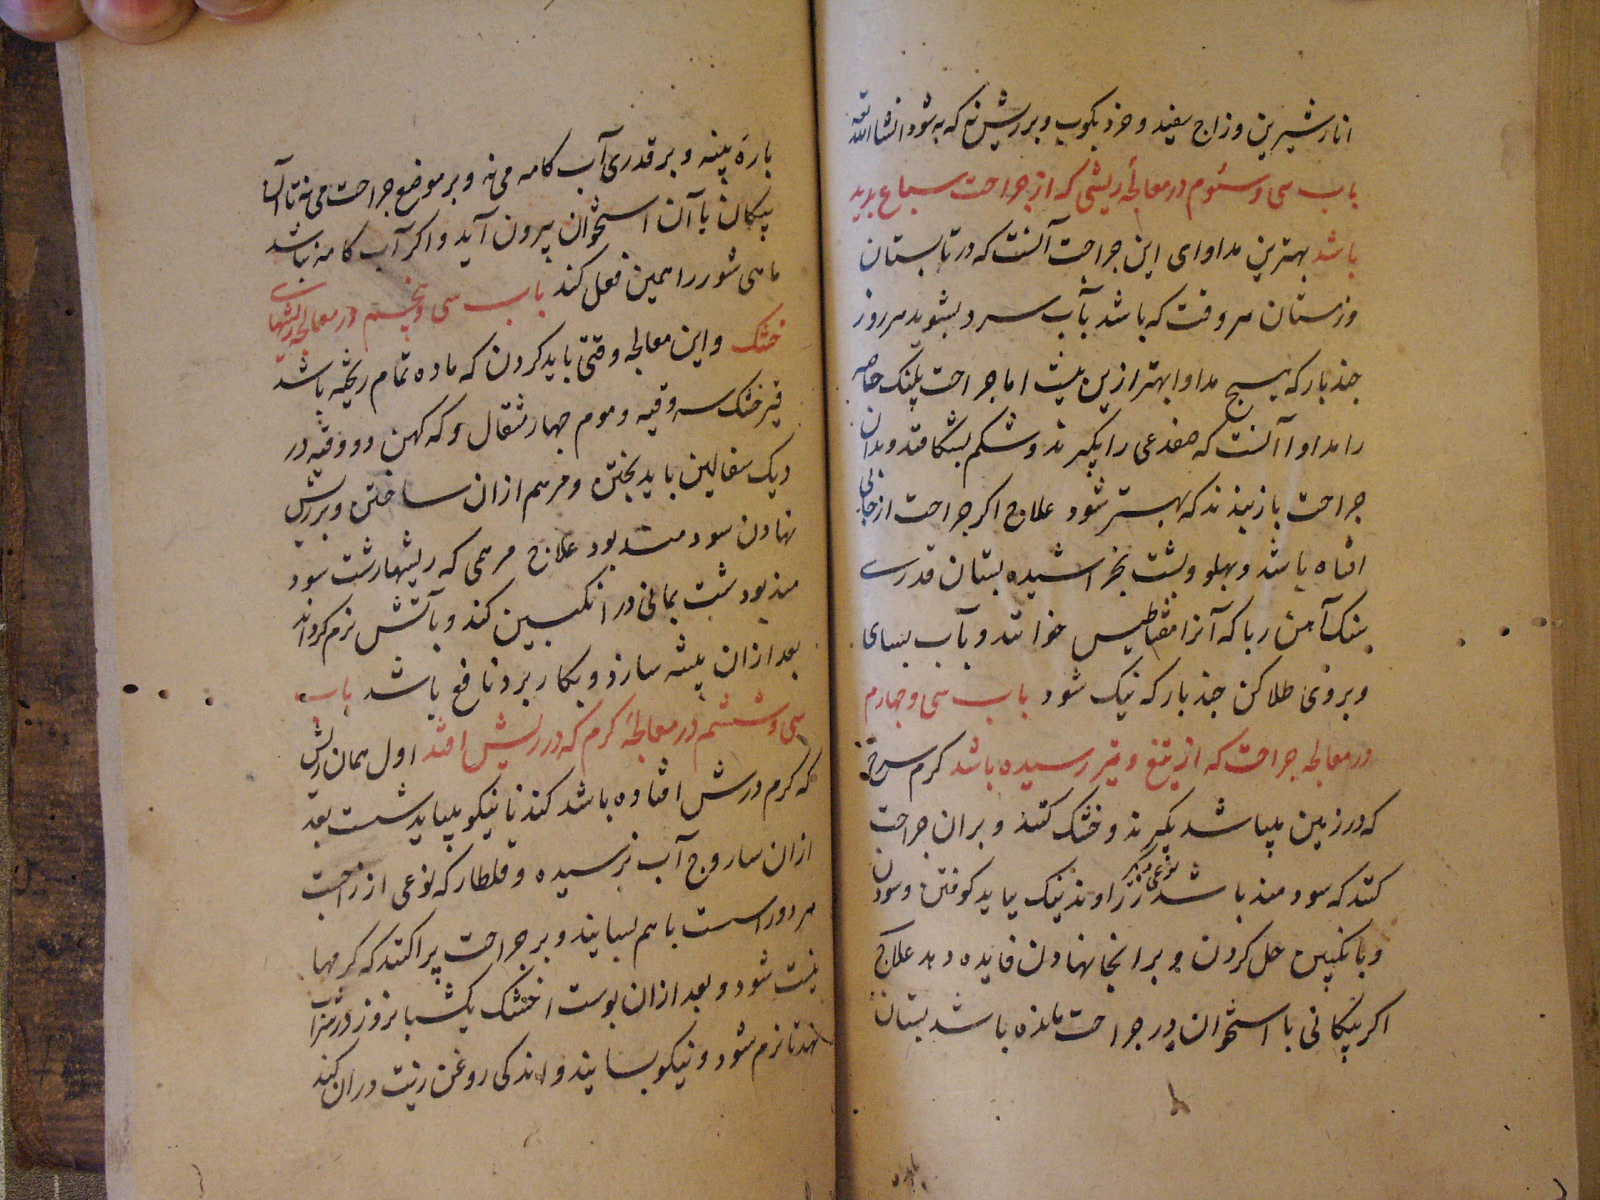 انار شیرین و زاج سفید و خرد بکوب و بر ریش نه که به شود انشاالله تعه
باب سی و سئوم در معالجهٔ ریشی که از جراحت سباع پدید
باشد بهترین مداوای این جراحت آنست که در تابستان
و زمستان هر وقت که باشد بآب سرد بشوید هر روز
چند بار که هیچ مداوا بهتر ازین نیست اما جراحت پلنک خاصه
را مداوا آنست که ضفدعی را بکیرند و شکم بشکافند و بدان
جراحت باز بندند که بهتر شود علاج اکر جراحت از جائی
افتاه باشد و پهلو و پشت بخراشیده بستان قدری
سنک آهن ربا که آنرا مقناطیس خوانند و بآب بسای
و بروی طلا کن چند بار که نیک شود باب سی و چهارم
در معالجه جراحت که از تیغ و تیر رسیده باشد کرم سرخ
که در زمین پیدا باشد بکیرند و خشک کنند و بران جراحت
کنند که سود مند باشد زراوند نیک بباید کوفتن و سودن
و بانکبین حل کردن و بر انجا نهادن فایده دهد علاج
اکر پیکانی یا استخوان در جراحت مانده باشد بستان
پارهٔ پنبه و بر قدری آب کامه می نه و بر موضع جراحت می نه تا آن
پیکان یا آن استخوان بیرون آید و اکر آب کامه نباشد
ماهی شور را همین فعل کند باب سی و پنجم در معالجه ریشهای
خشک و این معالجه وقتی باید کردن که ماده تمام ریخته باشد
قیر خشک سه وقیه و موم چهار مثقال و که کهن دو وقیه در
دیک سفالین باید پختن و مرهم ازان ساختن و بر ریش
نهادن سودمند بود علاج مرهمی که ریشهارشت سود
مند بود شب یمانی در انکبین کند و بآتش نرم کرداند
بعد ازان پلیته سازد و بکار برد نافع باشد باب
سی و ششم در معالجهٔ کرم که در ریش افتد اول همان ریش
که کرم درش افتاده باشد کند تا نیکو بباید شست بعد
ازان ساروج آب نرسیده و قلطار که نوعی از زاجست
هر دو راست با هم بسایند و بر جراحت پراکنند که کرمها
نیست شود و بعد ازان پوست خشک یکشبانروز در شراب
نهد تا نرم شود و نیکو بسایند و اندکی روغن زیت دران کند